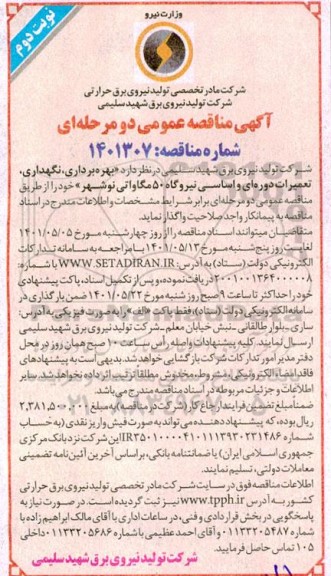 نوبت دوم
وزارت نیرو
شرکت مادر تخصصی تولید نیروی برق حرارتی
شرکت تولید نیروی برق شهید سلیمی
آگهی مناقصه عمومی دو مرحله‌ای
شماره مناقصه: ۱۴۰۱۳۰۷
شرکت تولید نیروی برق شهید سلیمی در نظر دارد «بهره‌برداری، نگهداری،
تعمیرات دوره‌ای و اساسی نیروگاه ۵۰ مگاواتی نوشهر» خود را از طریق
مناقصه عمومی دو مرحله‌ای برابر شرایط مشخصات و اطلاعات مندرج در اسناد
مناقصه به پیمانکار واجد صلاحیت واگذار نماید.
متقاضیان میتوانند اسناد مناقصه را از روز چهارشنبه مورخ ۱۴۰۱/۰۵/۰۵
لغایت روز پنج‌شنبه مورخ ۱۴۰۱/۰۵/۱۳ با مراجعه به سامانه تدارکات
الکترونیکی دولت (ستاد) به آدرس: WWW.SETADIRAN.IR با شماره:
۲۰۰۱۰۰۱۳۶۴۰۰۰۰۰۸ دریافت نموده و پس از تکمیل اسناد، پاکت پیشنهادی
خود را حداکثر تا ساعت ۹ صبح روز شنبه مورخ ۱۴۰۱/۰۵/۲۲ ضمن بارگذاری در
سامانه الکترونیکی دولت (ستاد)، فقط پاکت «الف» را به صورت فیزیکی به آدرس:
ساری - بلوار طالقانی - نبش خیابان معلم - شرکت تولید نیروی برق شهید سلیمی
ارسال نمایند. کلیه پیشنهادات واصله رأس ساعت ۱۰ صبح همان روز در محل
دفتر مدیر امور تدارکات شرکت بازگشایی خواهد شد. بدیهی است به پیشنهادهای
فاقد امضاء الکترونیکی، مشروط، مخدوش مطلقا ترتیب اثر داده نخواهد شد. سایر
اطلاعات و جزئیات مربوطه در اسناد مناقصه مندرج می‌باشد.
ضمناً مبلغ تضمین فرایند ارجاع کار (شرکت در مناقصه) به مبلغ ۲,۳۸۱,۵۰۰,۰۰۰
ریال بوده، که پیشنهاد دهنده می‌تواند به صورت فیش واریز نقدی (به حساب
شماره IR۳۵۰۱۰۰۰۰۴۱۰۱۱۱۳۹۳۰۲۳۱۴۸۶ این شرکت نزد بانک مرکزی
جمهوری اسلامی ایران) یا ضمانتنامه بانکی، بر اساس آخرین آئین‌نامه تضمینی
معاملات دولتی، تسلیم نمایند.
اطلاعات مناقصه فوق در سایت شرکت مادر تخصصی تولید نیروی برق حرارتی
کشور به آدرس www.tpph.ir نیز ثبت گردیده است. در صورت نیاز به
پاسخگویی در بخش قراردادی و فنی، در ساعات اداری با آقای مالک ابراهیم زاده با
شماره ۰۱۱۳۳۲۰۵۴۸۷ و آقای احمد عظیمی با شماره ۰۱۱۳۳۲۰۵۶۸۶ داخلی
۱۰۵ تماس حاصل فرمایید.
شرکت تولید نیروی برق شهید سلیمی